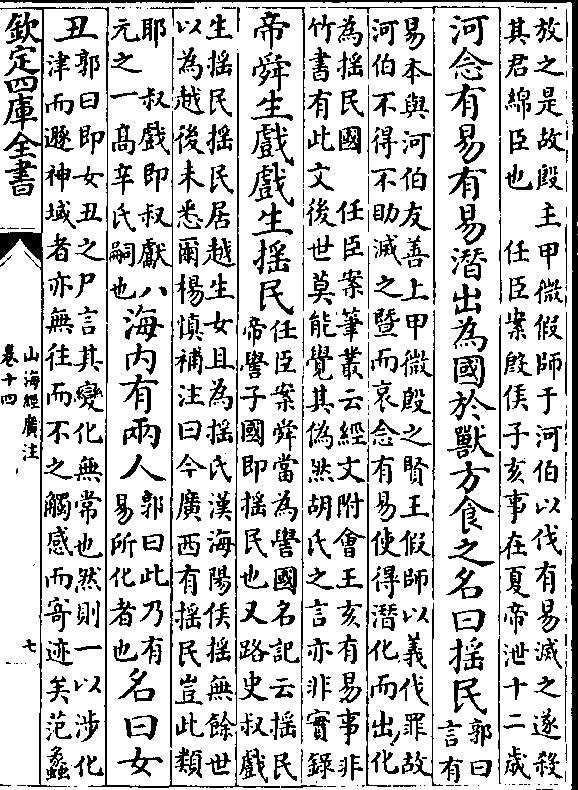 放之是故殷主甲微假師于河伯以伐有易滅之遂殺
其君綿臣也　任臣案殷侯子亥事在夏帝泄十二歲
河念有易有易潛出為國於獸方食之名曰揺民
郭曰
言有
易本與河伯友善上甲微殷之賢王假師以義伐罪故
河伯不得不助滅之暨而哀念有易使得潛化而出化
為揺民國　任臣案筆叢云經文附會王亥有易事非
竹書有此文後世莫能覺其偽然胡氏之言亦非實錄
帝舜生戲戲生揺民
任臣案舜當為嚳國名記云揺民
帝嚳子國即揺民也又路史叔戲
生揺民揺民居越生女且為揺氏漢海陽侯揺無餘世
以為越後未悉爾楊慎補注曰今廣西有揺民豈此類
耶　叔戲即叔獻八
元之一高辛氏嗣也
海内有兩人
郭曰此乃有
易所化者也
名曰女
丑
郭曰即女丑之尸言其變化無常也然則一以涉化
津而遯神域者亦無往而不之觸感而寄迹矣范蠡
欽定四庫全書
山海經廣注
卷十四
七